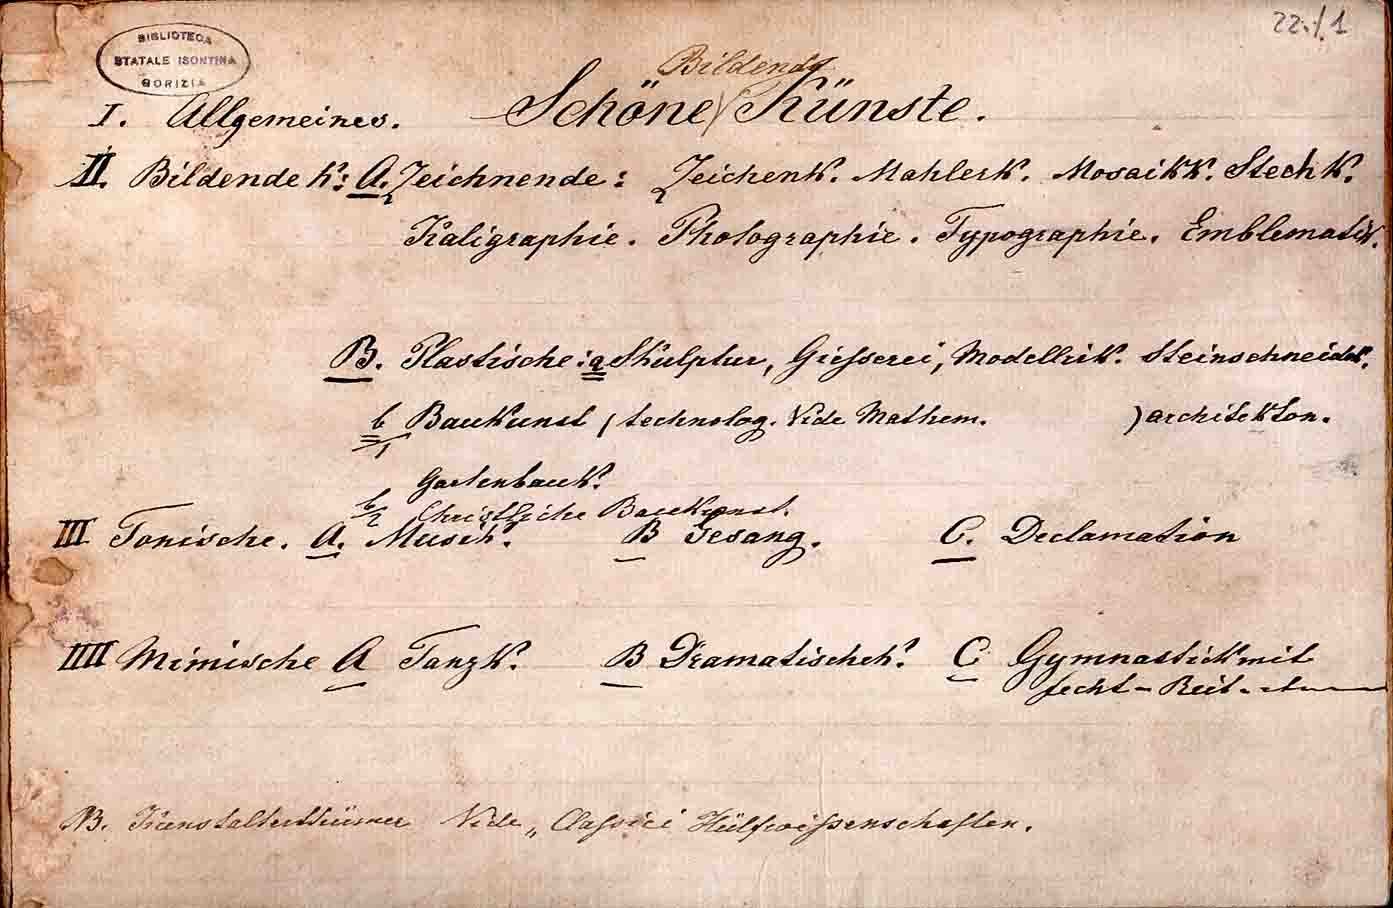 22./.1
BIBLIOTECA
STATALE ISONTINA
GORIZIA
Bildende
I. Allgemeines. Schöne Künste.
II. Bildende K: A. Zeichnende: Zeichenk. Mahlerk. Mosaikk. Stechk.
Kaligraphie. Photographie. Typographie. Emblematik.
B. Plastische: a Skulptur, Giesserei, Modellirk. Steinschneidek.
b/1 Baukunst ( technolog. Vide Mathem. ) architekton.
Gartenbauk.
b/2 Christliche Baukunst.
III Tonische. A. Musik. B Gesang. C. Declamation
IIII Mimische A Tanzk. B Dramatische k. C Gymnastick mit
fecht - Reit -
NB. Kunstalterthümer Vide „ Classici Hülfswissenschaften.